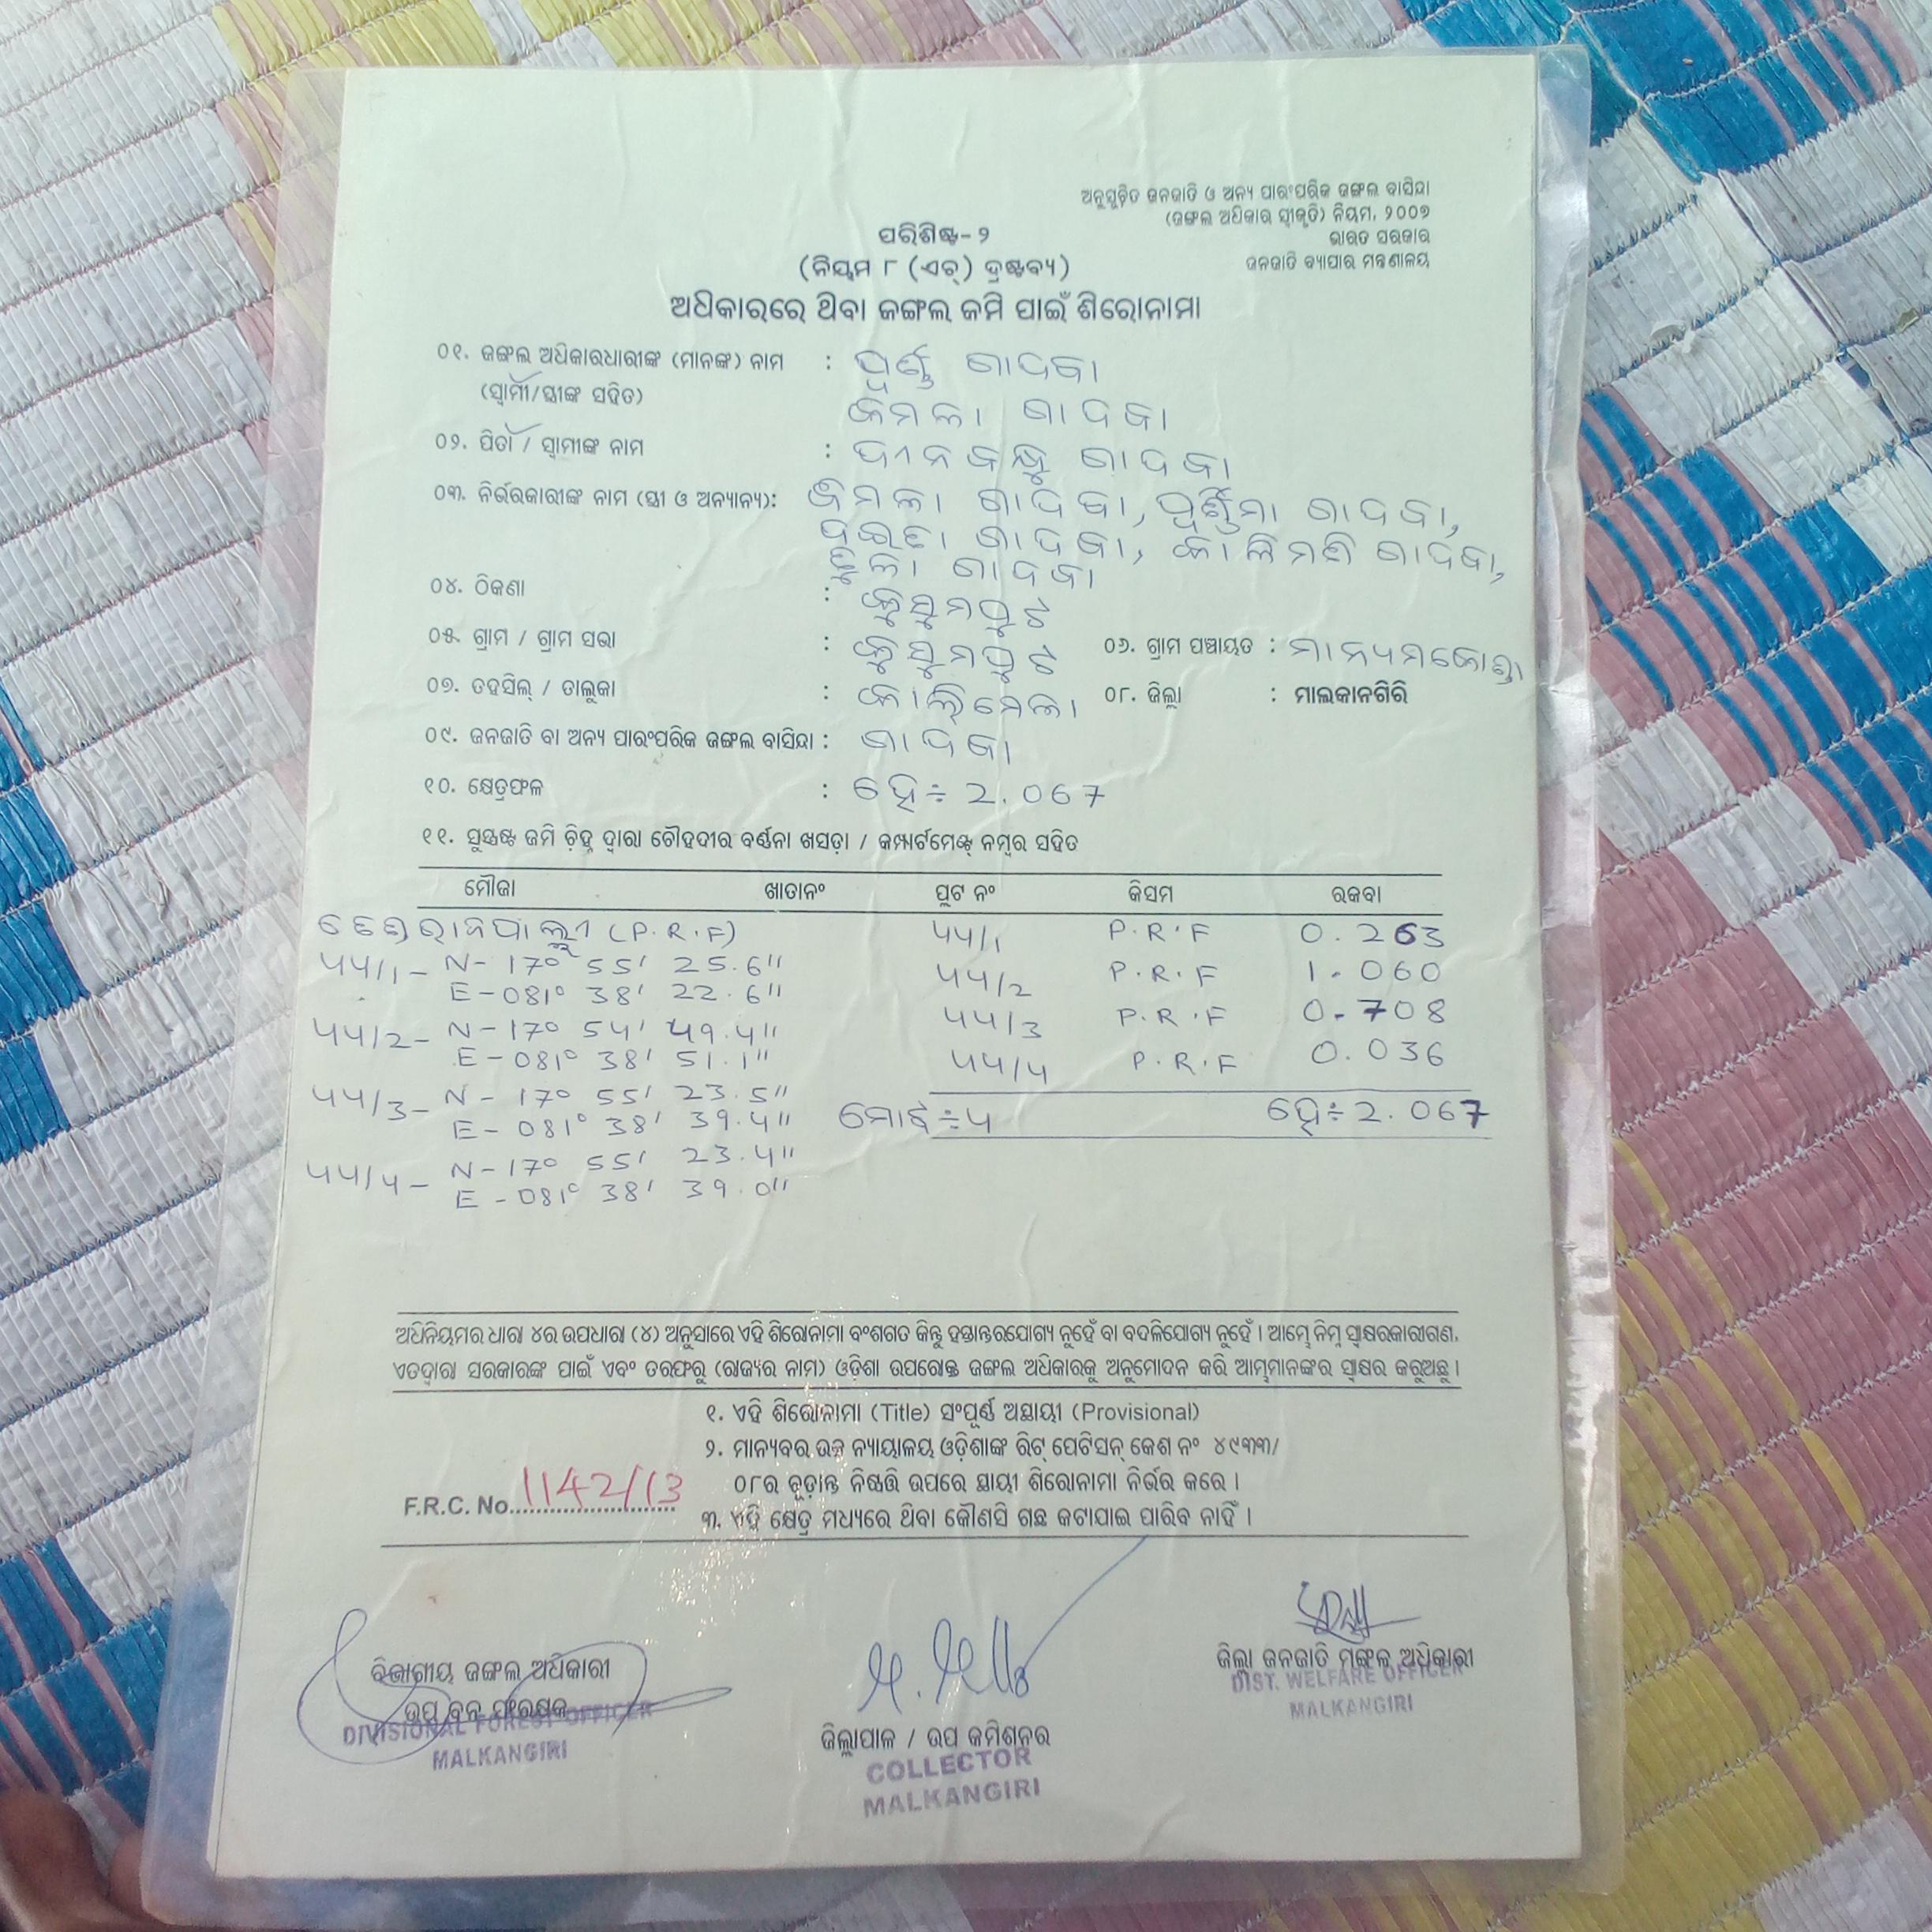 ଅନୁସୂଚିତ ଜନଜାତି ଓ ଅନ୍ୟ ପାରଂପରିକ ଜଙ୍ଗଲ ବାସିନ୍ଦା
(ଜଙ୍ଗଲ ଅଧିକାର ସ୍ୱୀକୃତି) ନିୟମ, ୨୦୦୭
ଭାରତ ସରକାର
ଜନଜାତି ବ୍ୟାପାର ମନ୍ତ୍ରଣାଳୟ
ପରିଶିଷ୍ଟ-୨
(ନିୟମ ୮ (ଏଚ୍) ଦ୍ରଷ୍ଟବ୍ୟ)
ଅଧିକାରରେ ଥିବା ଜଙ୍ଗଲ ଜମି ପାଇଁ ଶିରୋନାମା
୦୧. ଜଙ୍ଗଲ ଅଧିକାରଧାରୀଙ୍କ (ମାନଙ୍କ) ନାମ : ପୂର୍ଣ୍ଣ ଗାଦବା
(ସ୍ୱାମୀ/ସ୍ତ୍ରୀଙ୍କ ସହିତ) କମଳା ଗାଦବା
୦୨. ପିତା / ସ୍ୱାମୀଙ୍କ ନାମ : ଦୀନବନ୍ଧୁ ଗାଦବା
୦୩. ନିର୍ଭରକାରୀଙ୍କ ନାମ (ସ୍ତ୍ରୀ ଓ ଅନ୍ୟାନ୍ୟ): କମଳା ଗାଦବା, ପୂର୍ଣ୍ଣିମା ଗାଦବା,
ଗାଦବା, କାଳିମଣି ଗାଦବା,
ଗାଦବା
୦୪. ଠିକଣା : କୁସୁମପୁଟ
୦୫. ଗ୍ରାମ / ଗ୍ରାମ ସଭା : କୁସୁମପୁଟ ୦୬. ଗ୍ରାମ ପଞ୍ଚାୟତ : ମାନ୍ୟମକୋଣ୍ଡା
୦୭. ତହସିଲ୍ / ତାଲୁକା : କାଲିମେଳା ୦୮. ଜିଲ୍ଲା : ମାଲକାନଗିରି
୦୯. ଜନଜାତି ବା ଅନ୍ୟ ପାରଂପରିକ ଜଙ୍ଗଲ ବାସିନ୍ଦା : ଗାଦବା
୧୦. କ୍ଷେତ୍ରଫଳ : ହେ÷ 2.067
୧୧. ସୁସ୍ପଷ୍ଟ ଜମି ଚିହ୍ନ ଦ୍ୱାରା ଚୌହଦୀର ବର୍ଣ୍ଣନା ଖସଡ଼ା / କମ୍ପାର୍ଟମେଣ୍ଟ ନମ୍ବର ସହିତ
ମୌଜା ଖାତାନଂ ପ୍ଲଟ ନଂ କିସମ ରକବା
(P.R.F) 44/1 P.R.F 0.263
44/1- N- 17° 55' 25.6"
E-081° 38' 22.6" 44/2 P.R.F 1.060
44/2- N-17° 54' 49.4" 44/3 P.R.F 0.708
E-081° 38' 51.1" 44/4 P.R.F 0.036
44/3- N - 17° 55' 23.5"
E- 081° 38' 39.4" ମୋଟ÷4 ହେ÷2.067
44/4- N-17° 55' 23.4"
E -081° 38' 39.0"
ଅଧିନିୟମର ଧାରା ୪ର ଉପଧାରା (୪) ଅନୁସାରେ ଏହି ଶିରୋନାମା ବଂଶଗତ କିନ୍ତୁ ହସ୍ତାନ୍ତରଯୋଗ୍ୟ ନୁହେଁ ବା ବଦଳିଯୋଗ୍ୟ ନୁହେଁ । ଆମ୍ଭେ ନିମ୍ନ ସ୍ୱାକ୍ଷରକାରୀଗଣ,
ଏତଦ୍ୱାରା ସରକାରଙ୍କ ପାଇଁ ଏବଂ ତରଫରୁ (ରାଜ୍ୟର ନାମ) ଓଡ଼ିଶା ଉପରୋକ୍ତ ଜଙ୍ଗଲ ଅଧିକାରକୁ ଅନୁମୋଦନ କରି ଆମ୍ଭମାନଙ୍କର ସ୍ୱାକ୍ଷର କରୁଅଛୁ ।
୧. ଏହି ଶିରୋନାମା (Title) ସଂପୂର୍ଣ୍ଣ ଅସ୍ଥାୟୀ (Provisional)
୨. ମାନ୍ୟବର ଉଚ୍ଚ ନ୍ୟାୟାଳୟ ଓଡ଼ିଶାଙ୍କ ରିଟ୍ ପେଟିସନ୍ କେଶ ନଂ ୪୯୩୩/
୦୮ର ଚୂଡ଼ାନ୍ତ ନିଷ୍ପତ୍ତି ଉପରେ ସ୍ଥାୟୀ ଶିରୋନାମା ନିର୍ଭର କରେ ।
F.R.C. No. 1142/13
୩. ଏହି କ୍ଷେତ୍ର ମଧ୍ୟରେ ଥିବା କୌଣସି ଗଛ କଟାଯାଇ ପାରିବ ନାହିଁ ।
ବିଭାଗୀୟ ଜଙ୍ଗଲ ଅଧିକାରୀ
ଉପ ବନ ସଂରକ୍ଷକ
DIVISIONAL FOREST OFFICER
MALKANGIRI
ଜିଲ୍ଲାପାଳ / ଉପ କମିଶନର
COLLECTOR
MALKANGIRI
ଜିଲ୍ଲା ଜନଜାତି ମଙ୍ଗଳ ଅଧିକାରୀ
DIST. WELFARE OFFICER
MALKANGIRI